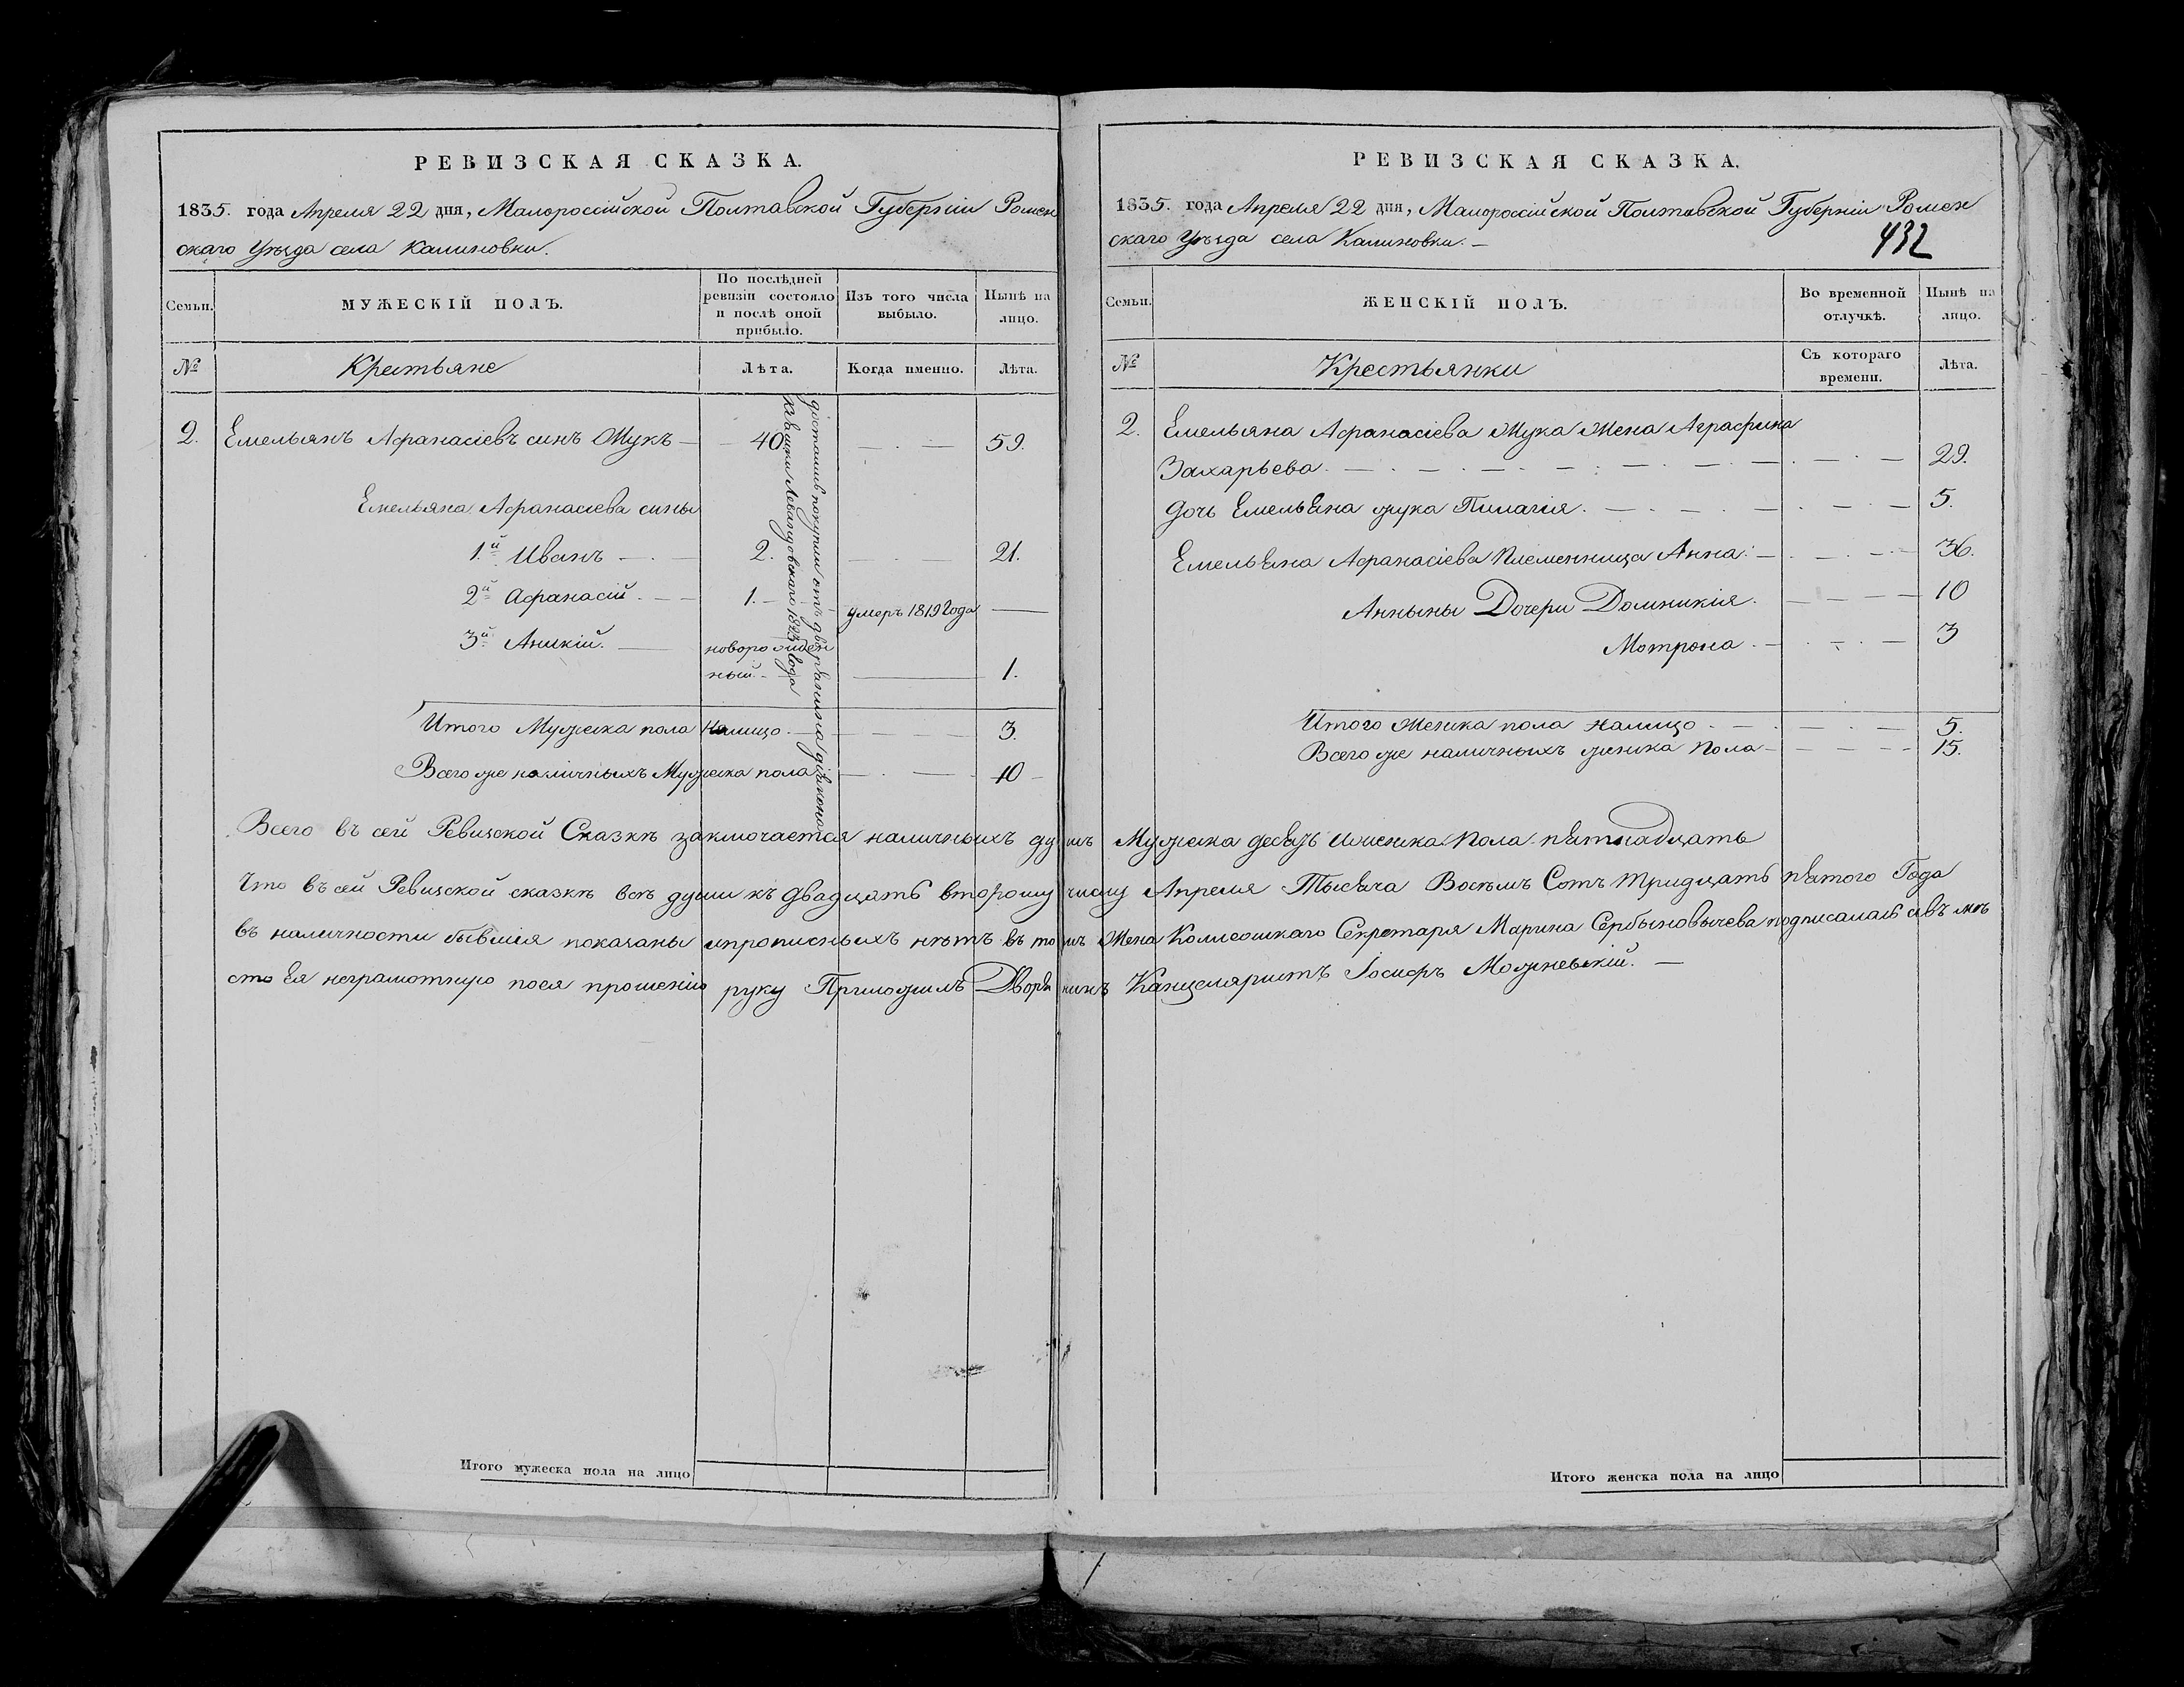 РЕВИЗСКАЯ СКАЗКА.
1835. года Апреля 22 дня, Малороссійской Полтавской Губерніи Ромен
скаго Уезда села Калиновки.
Семьи.
МУЖЕСКІЙ ПОЛЪ.
По послѣдней
ревизіи состояло
и послѣ оной
прибыло.
Изъ того числа
выбыло.
Нынѣ на
лицо.
№
Крестьяне
Лѣта.
Когда именно.
Лѣта.
2. Емельянъ Афанасіевъ синъ Мукъ 40 59.
Емельяна Афанасіева сины
1й Иванъ 2. 21.
2й Афанасій. 1. умеръ 1819 Года
3й Аникій. новорожден
ный. 1.
достались покупки отъ дворянина
Левандовскаго 1823 Года
Итого Мужеска пола Налицо 3.
Всего же налічныхъ Мужеска пола 10
РЕВИЗСКАЯ СКАЗКА.
1835. года Апреля 22 дня, Малороссійской Полтавской Губерніи Ромен
скаго Уезда села Калиновки.
432
Семьи.
ЖЕНСКІЙ ПОЛЪ.
Во временной
отлучкѣ.
Нынѣ на
лицо.
№
Крестьянки
Съ котораго
времени.
Лѣта.
2. Емельяна Афанасіева Мука Жена Аграфина
Захарьева. 29.
Дочь Емельяна мука Пилагія. 5.
Емельяна Афанасіева Племенница Анна. 36.
Анныны Дочери Домникія. 10
Мотрона. 3
Итого Женска пола Налицо 5.
Всего же наличныхъ женска Пола 15.
Всего въ сей Ревизской Сказкѣ заключается наличныхъ душъ Мужеска десять Иженска Пола пятнадцать
Что въ сей Ревизской сказкѣ всѣ души къ Двадцать второму числу Апреля Тысяча Восѣмъ Сотъ Тридцать пятого Года
въ наличности бывшія показаны ипрописныхъ нѣтъ въ томъ Жена Колиошкаго Секретаря Марина Сербыновычева подписалась авъ мѣ
сто Ея неграмотную поея прошенію руку Приложилъ Дворянинъ Канцеляристъ Іосифъ Можневскій.
Итого мужеска пола на лицо
Итого женска пола на лицо